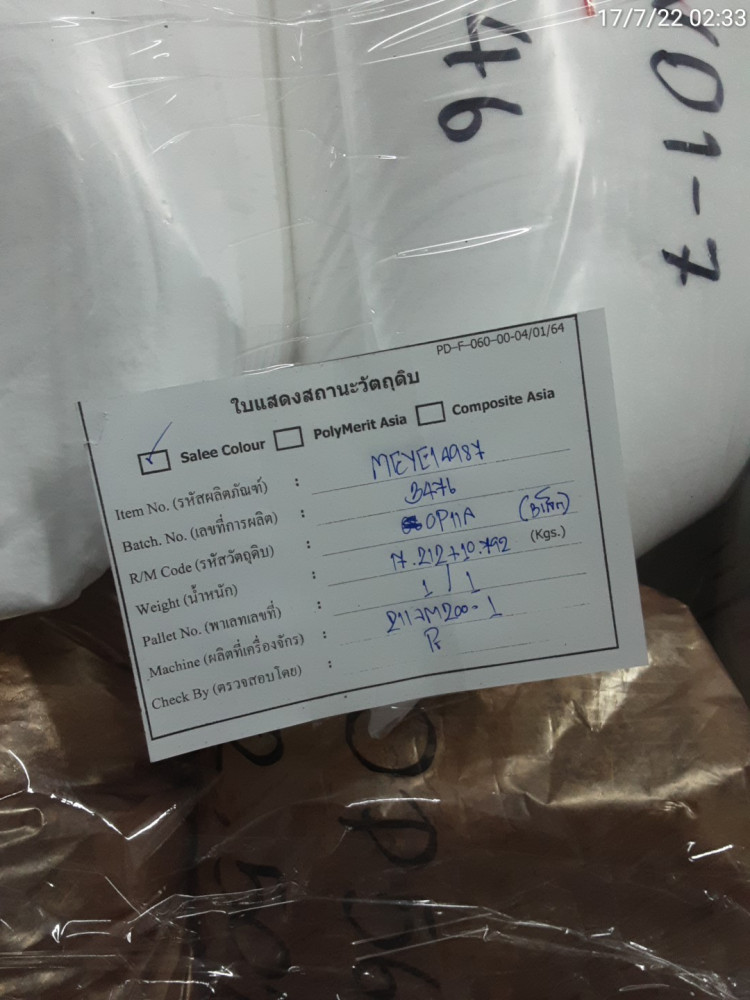 17/7/22 02:33
46
Y01-7
PD-F-060-00-04/01/64
ใบแสดงสถานะวัตถุดิบ
Salee Colour PolyMerit Asia Composite Asia
Item No. (รหัสผลิตภัณฑ์) : MEYE14987
Batch. No. (เลขที่การผลิต) : 3476
R/M Code (รหัสวัตถุดิบ) : OP11A
Weight (น้ำหนัก) : 17.212+10.792 (Kgs.)
Pallet No. (พาเลทเลขที่) : 1 / 1
Machine (ผลิตที่เครื่องจักร) : 2117M200-1
Check By (ตรวจสอบโดย) :